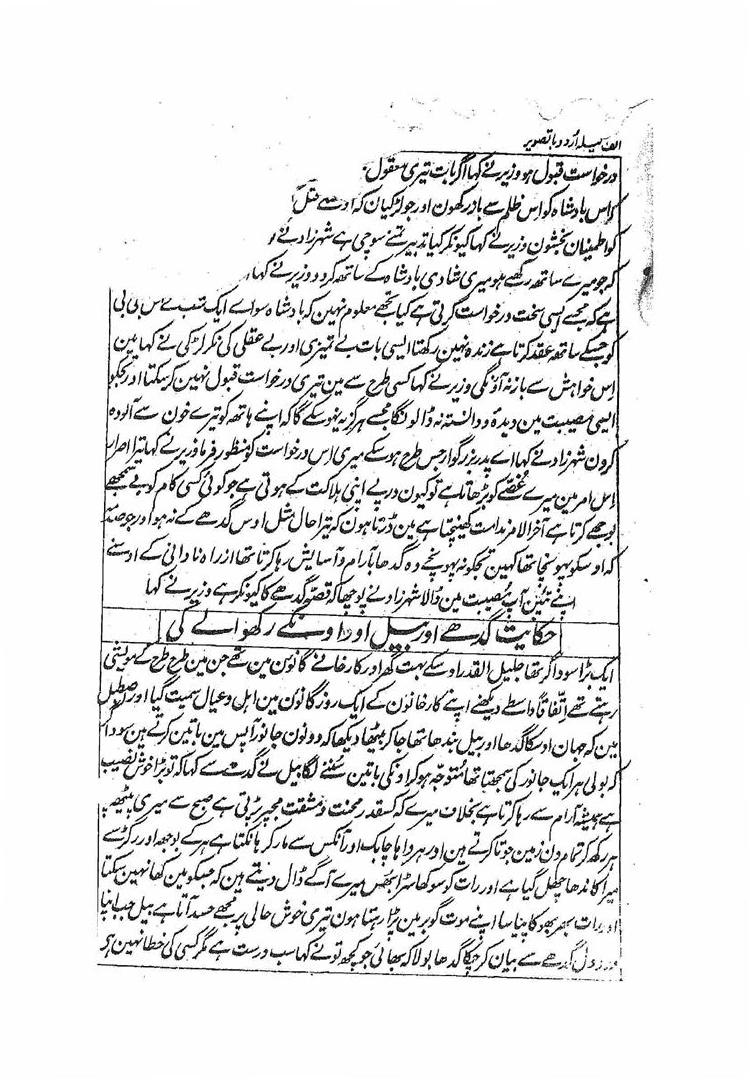 الف لیلہ اُردو باتصویر
درخواست قبول ہو وزیر نے کہا اگر بات تیری معقول
کہ اس بادشاہ کو اس ظلم سے باز رکھون اور جو لڑکیان کہ اوسے قتل
کو اطمینان بخشون وزیر نے کہا کیونکر کیا تدبیر تنے سوچی ہے شہرزاد نے
کہ جو میرے ساتھ رکھتے ہو میری شادی بادشاہ کے ساتھ کر دو وزیر نے کہا
ہے کہ مجھسے ایسی سخت درخواست کرتی ہے کیا تجھے معلوم نہین کہ بادشاہ سواے ایک شب کے اس بی بی
کو جسکے ساتھ عقد کرتا ہے زندہ نہین رکھتا ایسی بات بے تمیزی اور بے عقلی کی نکر لڑکی نے کہا مین
اس خواہش سے باز نہ آؤنگی وزیر نے کہا کسی طرح سے مین تیری درخواست قبول نہین کر سکتا اور تجکو
ایسی مصیبت مین دیدہ و دانستہ نہ ڈالونگا مجھسے ہرگز یہ نہو سکے گا کہ اپنے ہاتھ کو تیرے خون سے آلودہ
کرون شہرزاد نے کہا اے پدر بزرگوار جس طرح ہو سکے میری اس درخواست کو منظور فرما وزیر نے کہا تیرا اصرار
اس امر مین میرے غصے کو بڑھاتا ہے تو کیون درپے اپنی ہلاکت کے ہوتی ہے جو کوئی کسی کام کو بے سمجھے
بوجھے کرتا ہے آخر الامر ندامت کھینچتا ہے مین ڈرتا ہون کہ تیرا حال مثل اوس گدھے کے نہ ہو اور جو صدمہ
کہ اوسکو پہونچا تھا کہین تجکو نہ پہونچے وہ گدھا بآرام و آسایش رہا کرتا تھا از راہ نادانی کے اوسنے
اپنے تئین آپ مصیبت مین ڈالا شہرزاد نے پوچھا کہ قصہ گدھے کا کیونکر ہے وزیر نے کہا
حکایت گدھے اور بیل اور اونکے رکھوالے کی
ایک بڑا سوداگر تھا جلیل القدر اوسکے بہت گھر اور کارخانے گانون مین تھے جن مین طرح طرح کے مویشی
رہتے تھے اتفاقاً واسطے دیکھنے اپنے کارخانون کے ایک روز گانون مین اہل و عیال سمیت گیا اور صطبل
مین کہ جہان اوسکا گدھا اور بیل بندھا تھا جا کر بیٹھا دیکھا کہ دونون جانور آپس مین باتین کرتے ہین سوداگر
کہ بولی ہر ایک جانور کی سمجھتا تھا متوجہ ہو کر اونکی باتین سُننے لگا بیل نے گدھے سے کہا کہ تو بڑا خوش نصیب
ہے ہمیشہ آرام سے رہا کرتا ہے بخلاف میرے کہ کسقدر محنت و مشقت مجپر پڑتی ہے صبح سے میری پیٹھ پر
ہر رکھ کر تمام دن زمین جوتا کرتے ہین اور ہر واہا چابک اور آنکس سے مار کر ہانکتا ہے ہر کے بوجھ اور رگڑ سے
میرا کاندھا چھل گیا ہے اور رات کو سوکھا سڑا بھس میرے آگے ڈال دیتے ہین کہ جسکو مین کھا نہین سکتا
اور رات بھر بھوکا پیاسا اپنے موت گوبر مین پڑا رہتا ہون تیری خوش حالی پر مجھے حسد آتا ہے بیل جب اپنا
درد دل گدھے سے بیان کر چکا گدھا بولا کہ بھائی جو کچھ تو نے کہا سب درست ہے مگر کسی کی خطا نہین ہے